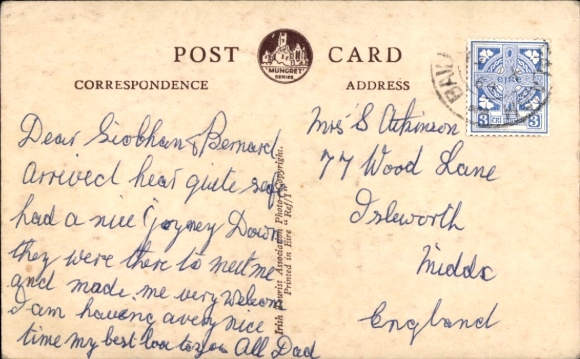 POST CARD
"MUNGRET"
SERIES
CORRESPONDENCE
ADDRESS
Dear Siobhan & Bernard
arrived hear quite safe
had a nice joyney Down
they were there to meet me
and made me very welcom
I am haveing a very nice
time my best love to you All Dad
Irish Tourist Association Photo—Copyright.
Printed in Eire "Ref/I"
Mrs S Atkinson
77 Wood Lane
Isleworth
Middx
England
ÉIRE
3